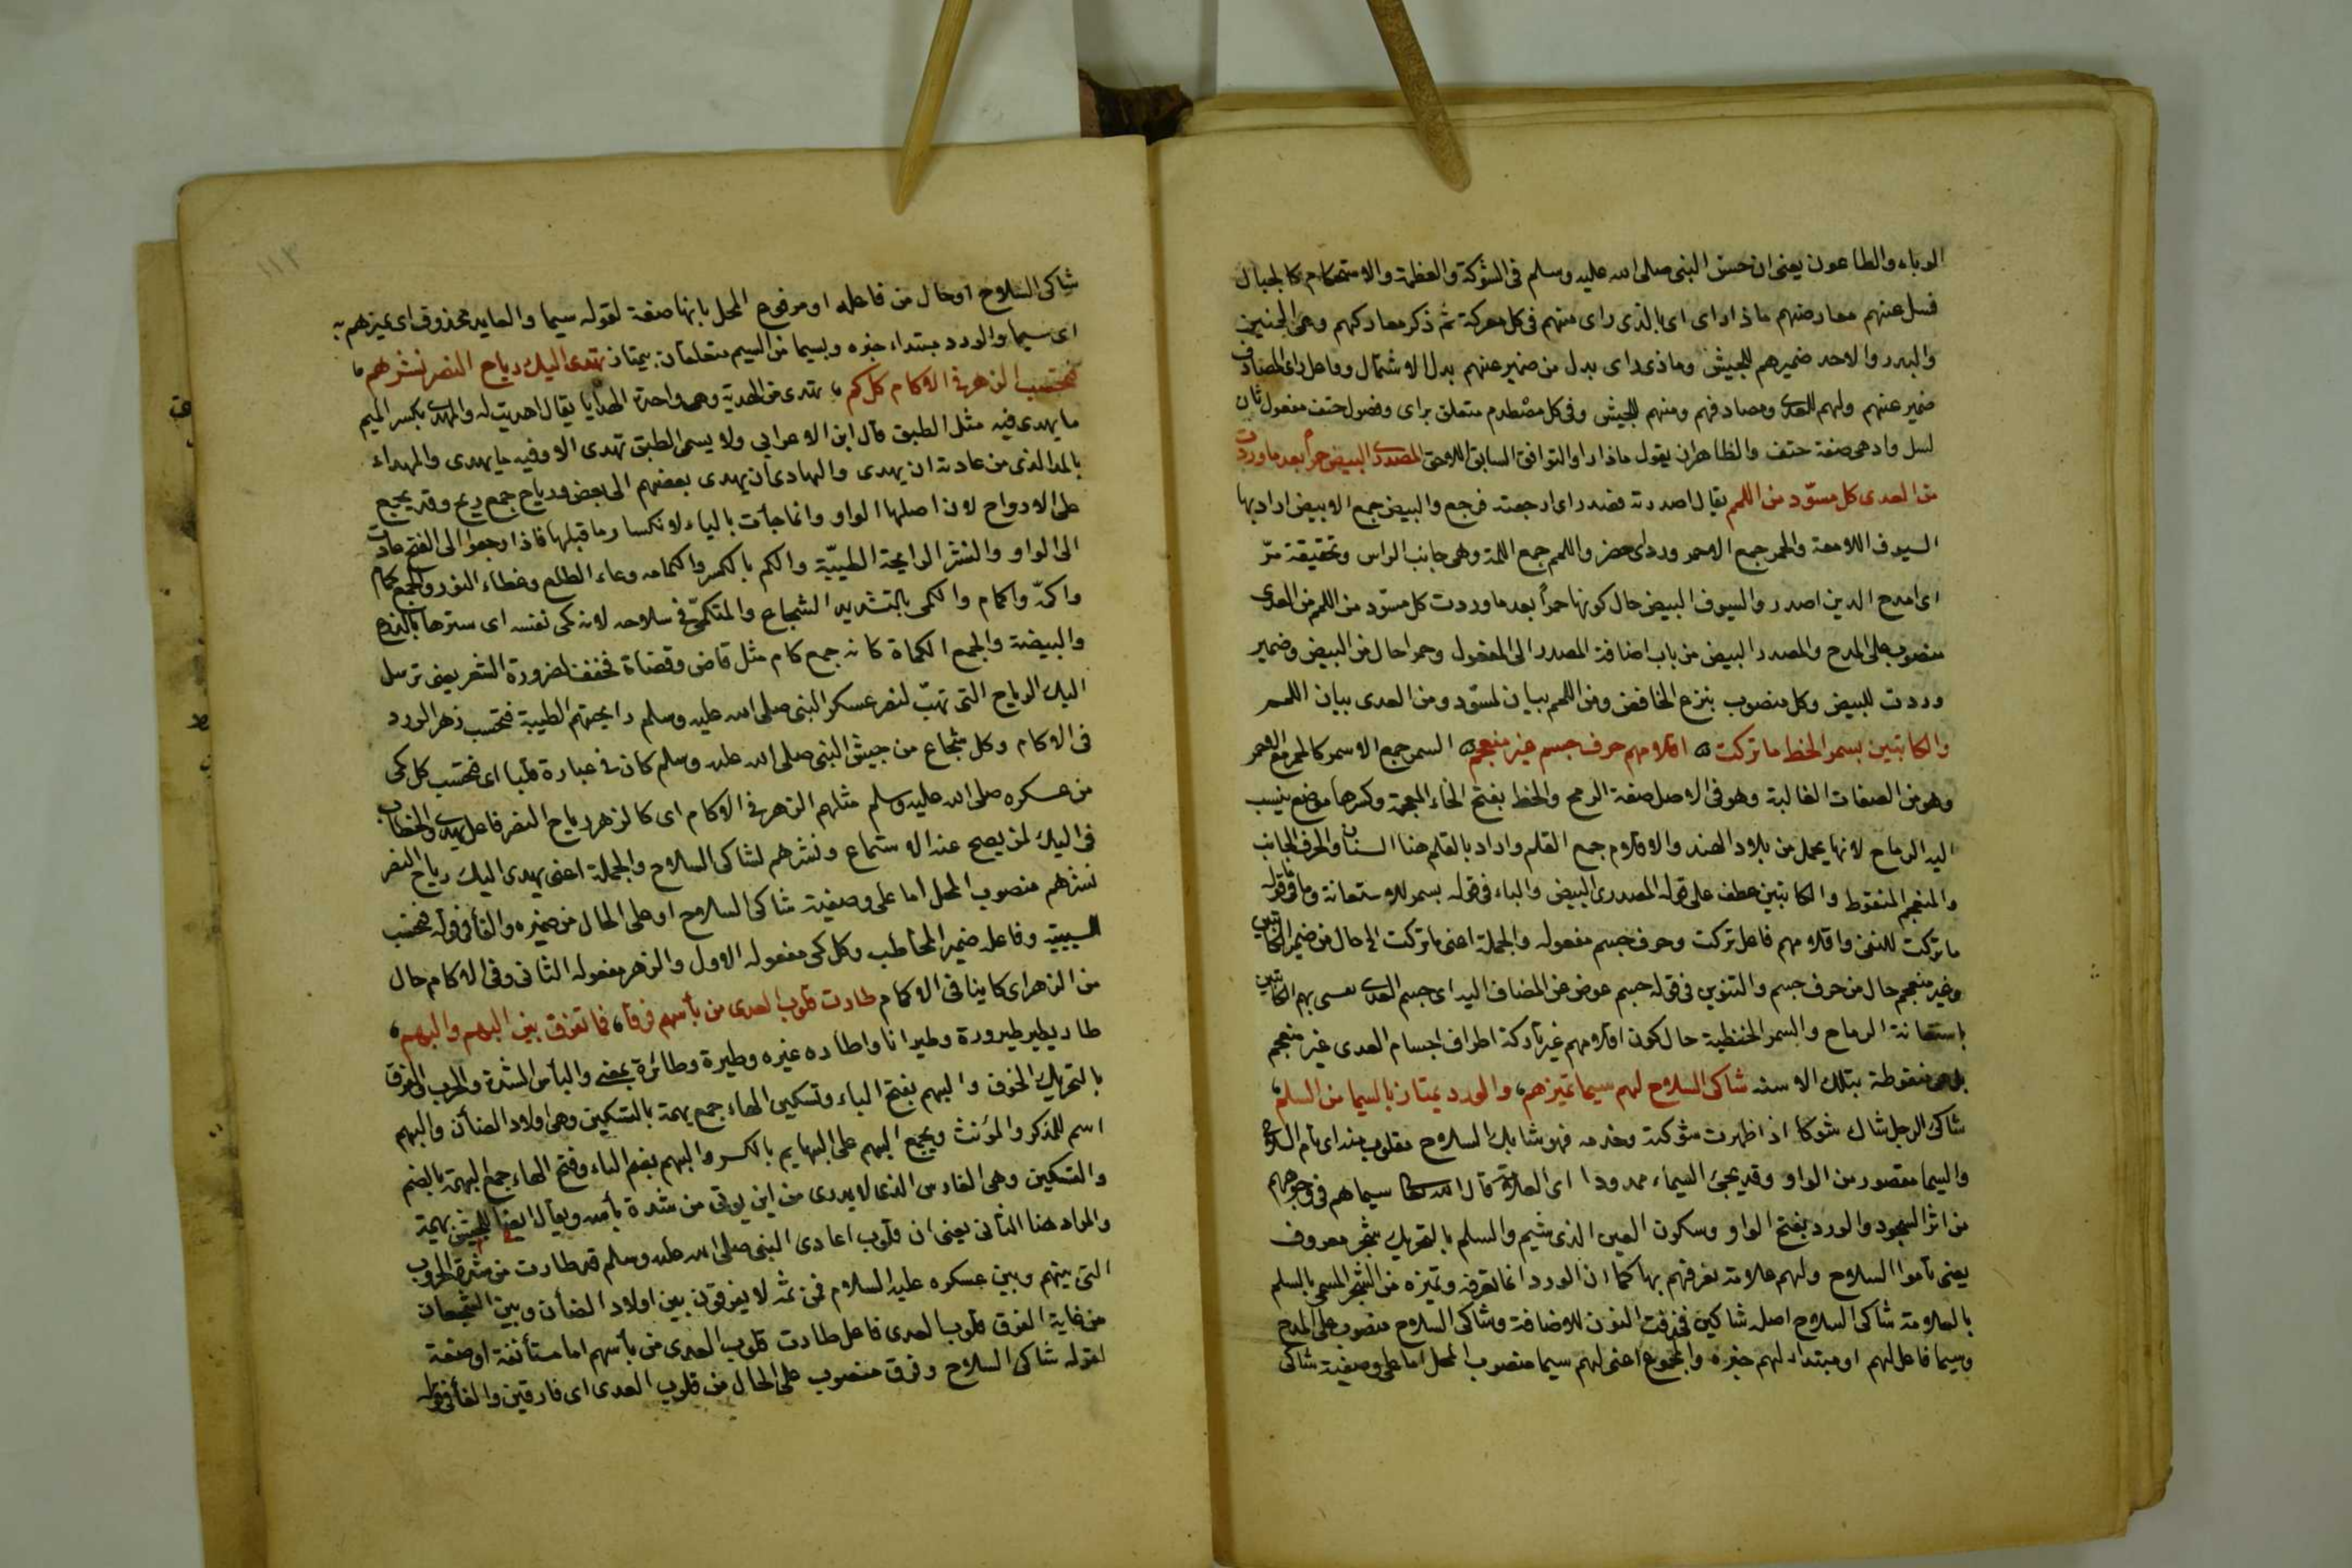 الوباء والطاعون يعنى ان حسن النبى صلى الله عليه وسلم فى الشوكة والعظمة والاستحكام كالجبال
فسل عنهم مصادمهم ماذا راى اى بالذى راى منهم فى كل معركة ثم ذكر معاركهم وهى الحنين
والبدر والاحد ضميرهم للجيش وماذا راى بدل من ضمير عنهم بدل الاشتمال وفاعل راى المصادف
ضمير عنهم ولهم للعدى ومصادفهم ومنهم للجيش وفى كل مصطدم متعلق براى وفصول حتف مفعول ثان
لسل وادهى صفة حتف والظاهر ان يقول ماذا راوا لتوافق السابق اللاحق المصدرى البيض حمرا بعد ما وردت
من العدى كل مسوّد من اللمم يقال اصدرته فصدر اى ارجعته فرجع والبيض جمع الابيض اراد بها
السيوف اللامعة والحمر جمع الاحمر ورد اى حضر واللمم جمع اللمة وهى جانب الراس وتحقيقة مرّ
اى امدح الذين اصدروا السيوف البيض حال كونها حمراً بعد ما وردت كل مسوّد من اللمم من العدى
منصوب على المدح والمصدر البيض من باب اضافة المصدر الى المفعول وحمرا حال من البيض وضمير
وردت للبيض وكل منصوب بنزع الخافض ومن اللمم بيان لمسوّد ومن العدى بيان اللمم
والكاتبين بسمر الخط ما تركت اقلامهم حرف جسم غير منعجم السمر جمع الاسمر كالحمر مع الاحمر
وهو من الصفات الغالبة وهو فى الاصل صفة الرمح والخط بفتح الخاء المعجمة وكسرها موضع ينسب
اليه الرماح لانها يحمل من بلاد الهند والاقلام جمع القلم واراد بالقلم هنا السنان والحرف الجانب
والمنعجم المنقوط والكاتبين عطف على قوله المصدرى البيض والباء فى قوله بسمر للاستعانة وما فى قوله
ما تركت للنفى واقلامهم فاعل تركت وحرف جسم مفعوله والجملة اعنى ما تركت الخ حال من ضمير الكاتبين
وغير منعجم حال من حرف جسم والتنوين فى قوله جسم عوض عن المضاف اليه اى جسم العدى يعنى بهم الكاتبين
باستعانة الرماح والسمر الخطية حال كون اقلامهم غير تاركة اطراف اجسام العدى غير منعجم
بل هى منقوطة بتلك الاسنه شاكى السلاح لهم سيما تميزهم والورد يمتاز بالسيما من السلم
شاكى الرجل شاك شوكا اذا ظهرت شوكته وحدته فهو شايك السلاح مقلوب منه اى تام السلاح
والسيما مقصور من الواو وقد يجئ السيماء ممدودا اى العلامة قال الله تعالى سيماهم فى وجوههم
من اثر السجود والورد بفتح الواو وسكون العين الذى يشم والسلم بالتحريك شجر معروف
يعنى تاموا السلاح ولهم علامة تعرفهم بها كما ان الورد انما تعرفه وتميزه من الشجر المسمى بالسلم
بالعلامة شاكى السلاح اصله شاكين فحذفت النون للاضافة وشاكى السلاح منصوب على المدح
وسيما فاعل لهم او مبتداء لهم خبره والمجموع اعنى لهم سيما منصوب المحل اما على وصفية شاكى
١١٣
شاكى السلاح او حال من فاعله او مرفوع المحل بانها صفة لقوله سيما والعايد محذوف اى تميزهم به
اى سيما والورد مبتداء خبره وبسيما من السيم متعلقان بيمتاز تهدى اليك رياح النصر نشرهم
فتحسب الزهر فى الاكام كل كم تهدى من الهدية وهى واحدة الهدايا يقال اهديت له والمهدى بكسر الميم
ما يهدى فيه مثل الطبق قال ابن الاعرابى ولا يسمى الطبق تهدى الا وفيه ما يهدى والمهداء
بالمد الذى من عادته ان يهدى والتهادى ان يهدى بعضهم الى بعض ورياح جمع ريح وقد يجمع
على الارواح لان اصلها الواو وانما جأت بالياء لانكسار ما قبلها فاذا رجعوا الى الفتح عادت
الى الواو والنشر الرايحة الطيبة والكم بالكسر والكمامه وعاء الطلع وغطاء النور والجمع كمام
واكمة واكمام والكمى بالتشديد الشجاع والمتكمّى فى سلاحه لانه كمى نفسه اى سترها بالدرع
والبيضة والجمع الكماة كانه جمع كام مثل قاض وقضاة فخفف لضرورة الشعر يعنى ترسل
اليك الرياح التى تهبّ لنصر عسكر النبى صلى الله عليه وسلم رايحتهم الطيبة فتحسب زهر الورد
فى الاكام وكل شجاع من جيش النبى صلى الله عليه وسلم كان فى عبارة قلبا اى فتحسب كل كمى
من عسكره صلى الله عليه وسلم مثلهم الزهر فى الاكام اى كالزهر رياح النصر فاعل يهدى والخطاب
فى اليك لمن يصح عنه الاستماع ونشرهم لشاكى السلاح والجملة اعنى يهدى اليك رياح النصر
نشرهم منصوب المحل اما على وصفية شاكى السلاح او على الحال من ضميره والفأ فى قوله فتحسب
السببية وفاعله ضمير المخاطب وكل كمى مفعوله الاول والزهر مفعوله الثانى وفى الاكام حال
من الزهر اى كاينا فى الاكمام طارت قلوب العدى من بأسهم فرقا فما تفرق بين البهم والبهم
طار يطير طيرورة وطيرانا واطاره غيره وطيرة وطائرة بمعنى والبأس الشدة والحرب والفرق
بالتحريك الخوف والبهم بفتح الباء وتسكين الهاء جمع بهمة بالتسكين وهى اولاد الضأن والبهم
اسم للمذكر والمؤنث ويجمع البهم على البهايم بالكسر والبهم بضم الباء وفتح الهاء جمع البهمة بالضم
والتسكين وهى الفارس الذى لا يدرى من اين يوتى من شدة بأسه ويقال ايضا للجيش بهمة
والمراد هنا الثانى يعنى ان قلوب اعادى النبى صلى الله عليه وسلم قد طارت من شدة الحروب
التى بينهم وبين عسكره عليه السلام فمن ثمه لا يفرقون بين اولاد الضأن وبين الشجعان
من غاية الفرق قلوب العدى فاعل طارت قلوب العدى من بأسهم اما مستأنفة او صفة
لقوله شاكى السلاح وفرق منصوب على الحال من قلوب العدى اى فارقين والفأ فى قوله